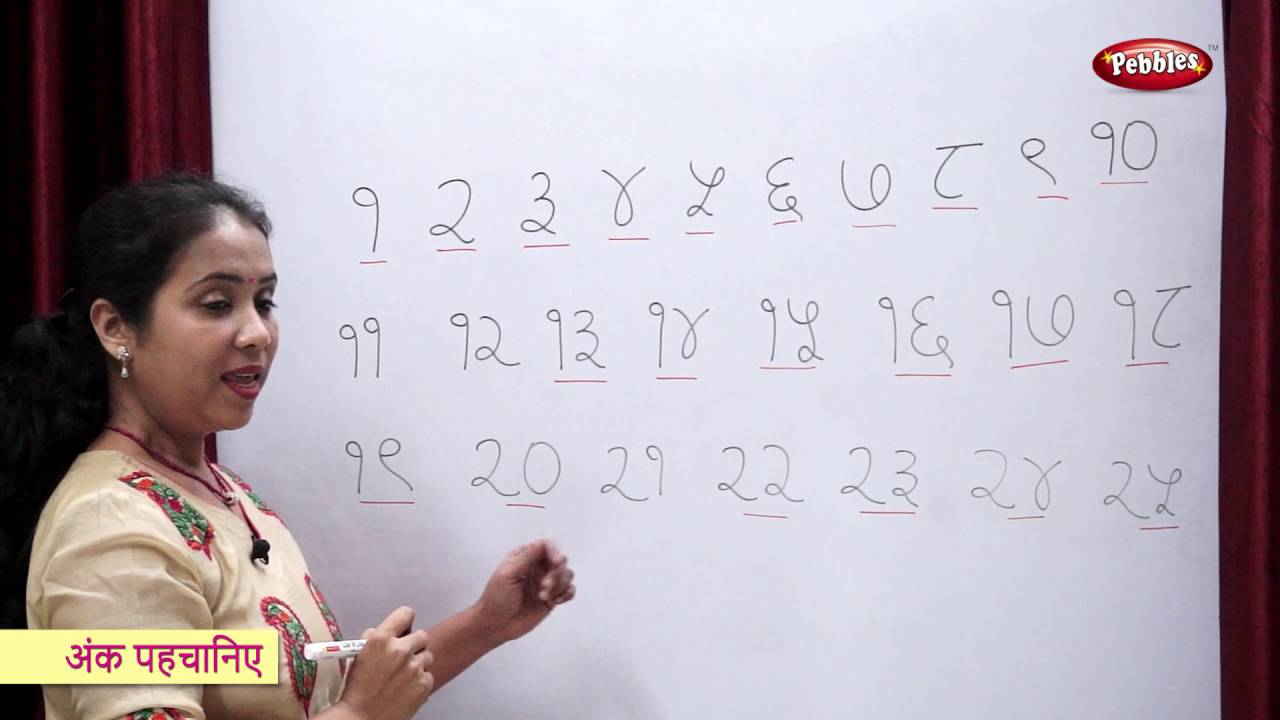 Pebbles™
१ २ ३ ४ ५ ६ ७ ८ ९ १०
११ १२ १३ १४ १५ १६ १७ १८
१९ २० २१ २२ २३ २४ २५
अंक पहचानिए